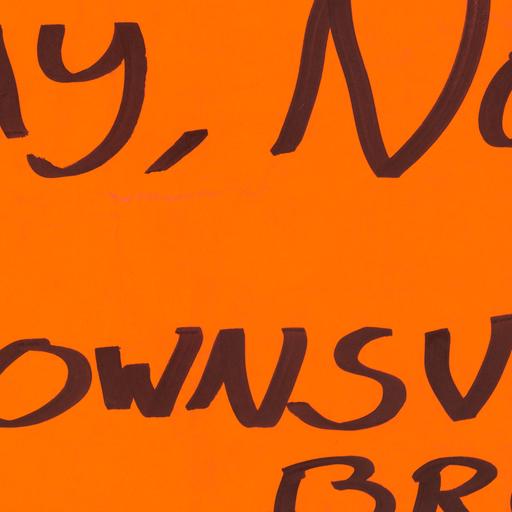 ay, No
OWNSV
BR